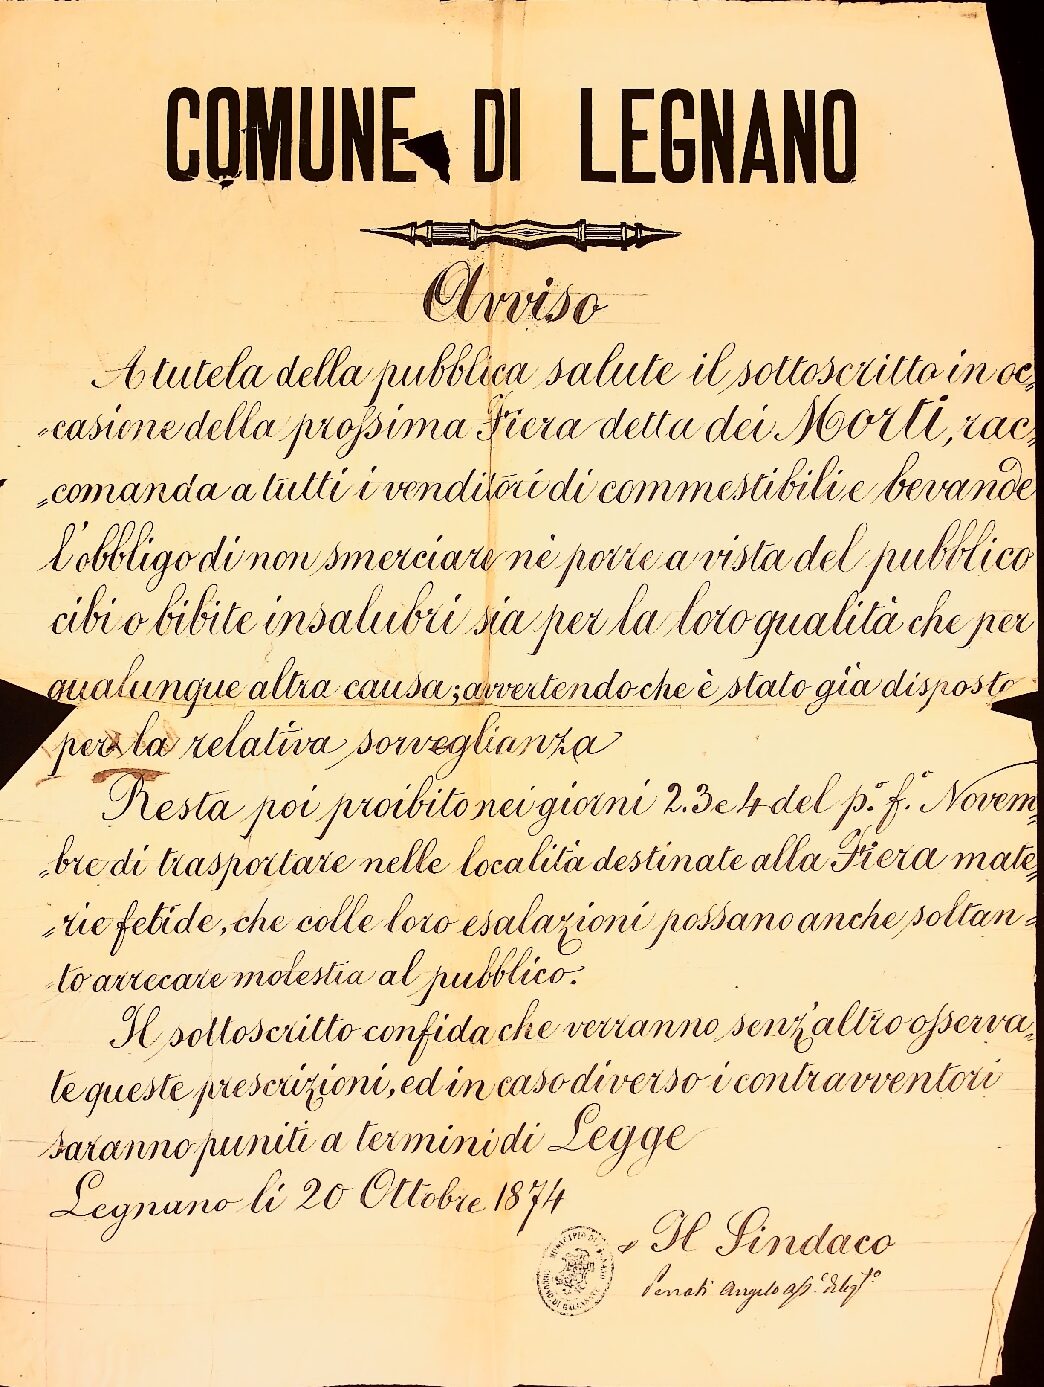 COMUNE DI LEGNANO
Avviso
A tutela della pubblica salute il sottoscritto in oc=
=casione della prossima Fiera detta dei Morti, rac=
=comanda a tutti i venditori di commestibili e bevande
l'obbligo di non smerciare nè porre a vista del pubblico
cibi o bibite insalubri sia per la loro qualità che per
qualunque altra causa; avvertendo che è stato già disposto
per la relativa sorveglianza
Resta poi proibito nei giorni 2. 3 e 4 del p.º f.º Novem=
=bre di trasportare nelle località destinate alla Fiera mate=
=rie fetide, che colle loro esalazioni possano anche soltan=
=to arrecare molestia al pubblico.
Il sottoscritto confida che verranno senz'altro osserva=
te queste prescrizioni, ed in caso diverso i contravventori
saranno puniti a termini di Legge
Legnano li 20 Ottobre 1874
Il Sindaco
Penati Angelo ass.
MUNICIPIO DI